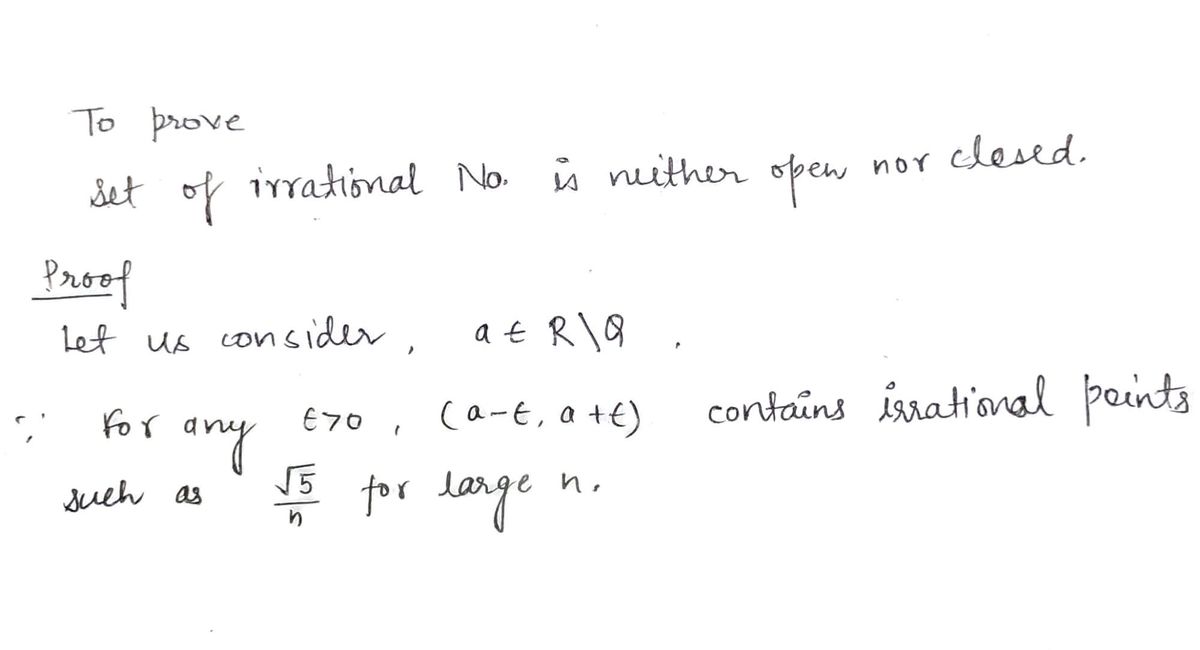 To prove
Set of irrational No. is neither open nor closed.
Proof
Let us consider, a ∈ R\Q.
∵ For any ϵ>0, (a-ϵ, a+ϵ) contains irrational points
such as √5/n for large n.